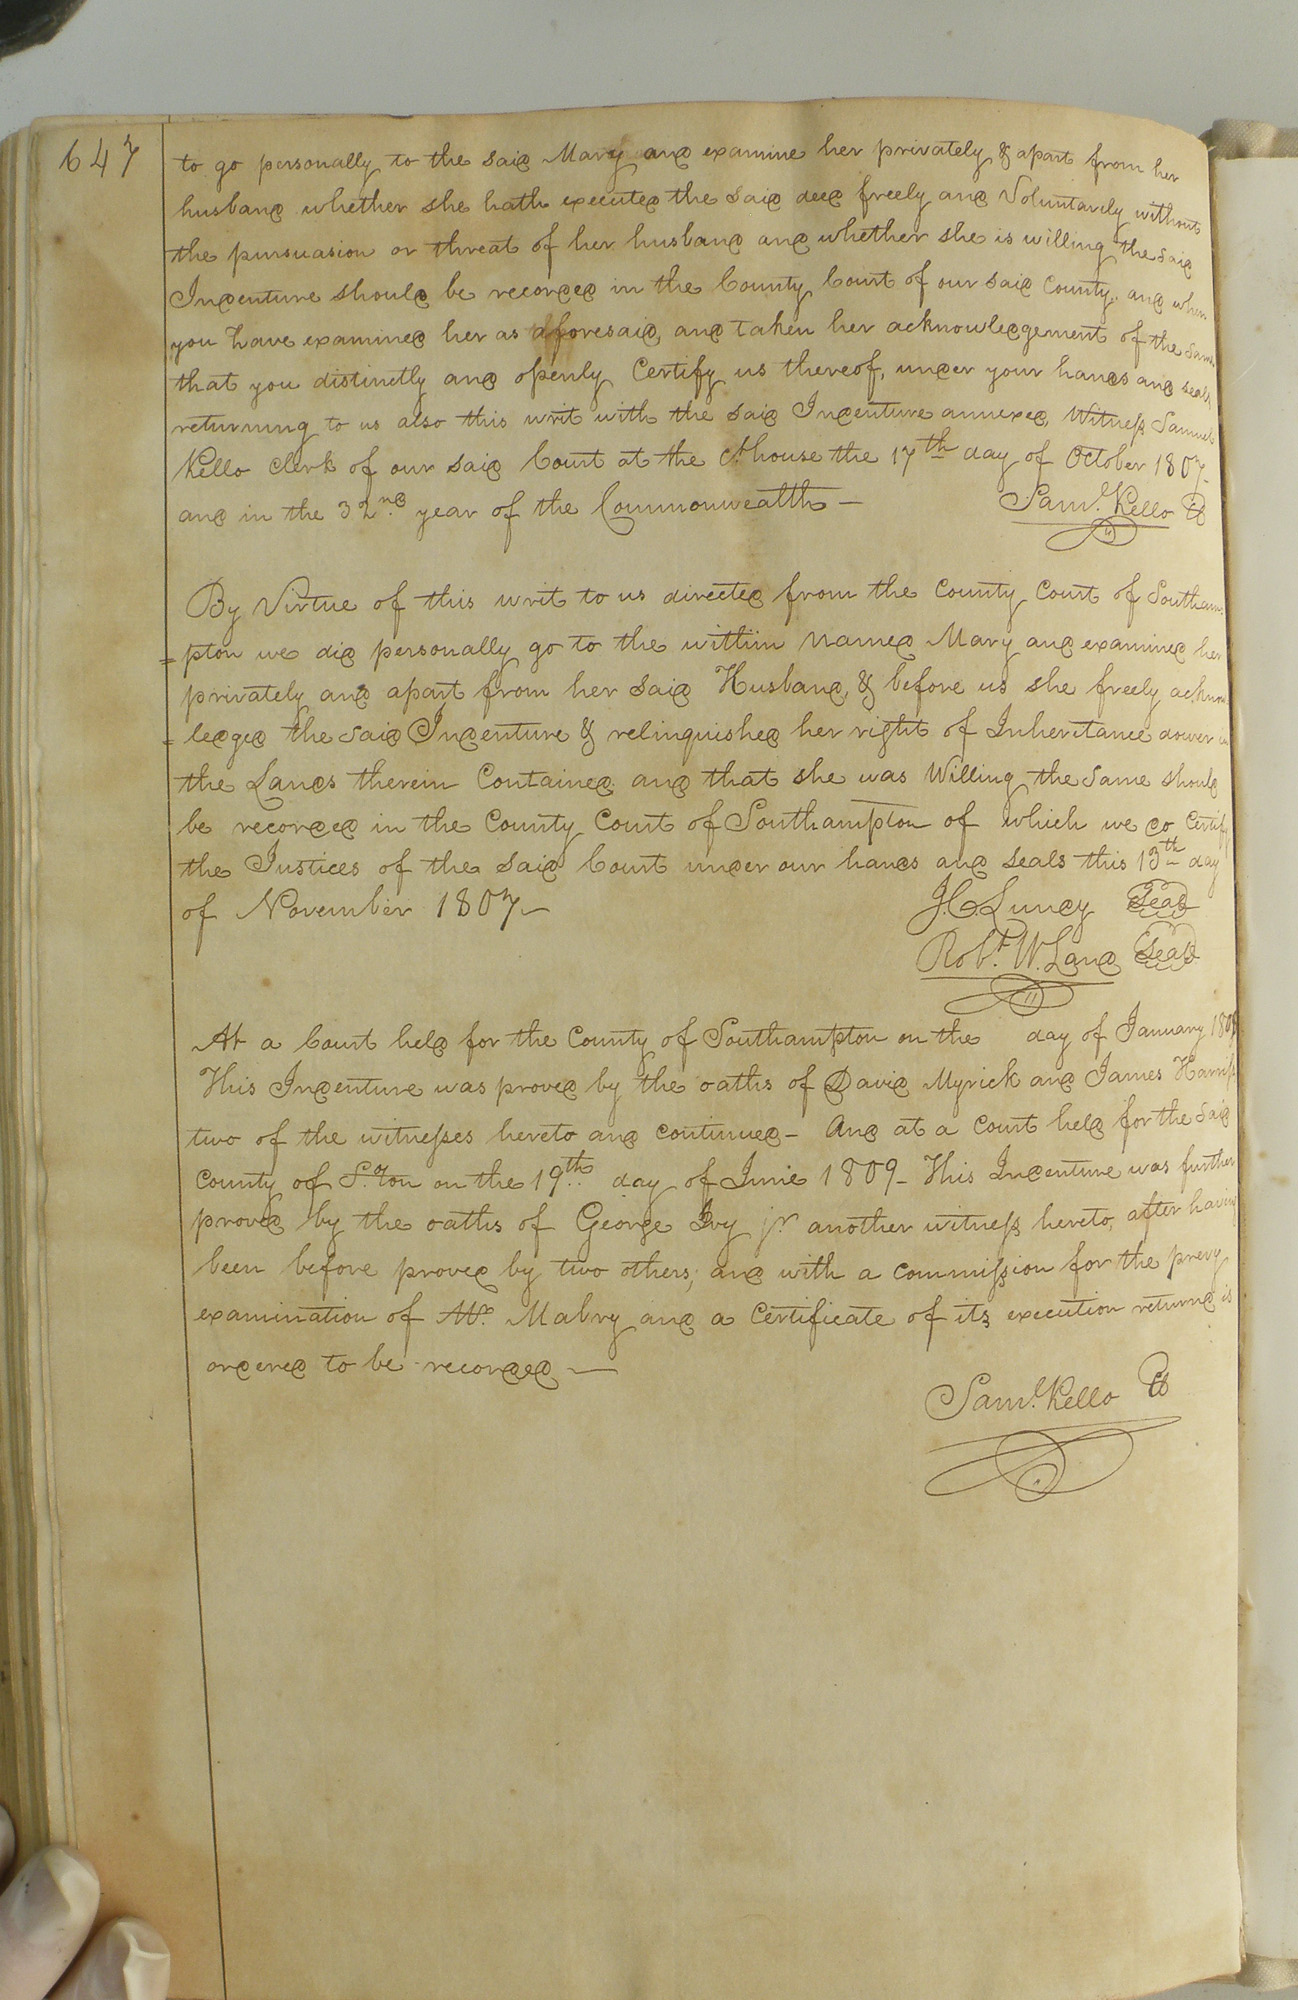 647
to go personally to the said Mary and examine her privately & apart from her
husband whether she hath executed the said deed freely and Voluntarily without
the pursuasion or threat of her husband and whether she is willing the said
Indenture should be recorded in the County Court of our said County, and when
you have examined her as aforesaid, and taken her acknowledgement of the same
that you distinctly and openly Certify us thereof, under your hands and seals
returning to us also this writ with the said Indenture annexed, Witness Samuel
Kello Clerk of our said Court at the Ct. house the 17th day of October 1807
and in the 32nd year of the Commonwealth —
Saml. Kello
By Virtue of this writ to us directed from the County Court of Southam
= pton we did personally go to the within named Mary and examined her
privately and apart from her said Husband, & before us she freely acknow
= ledged the said Indenture & relinquished her right of Inheritance dower in
the Lands therein Contained and that she was Willing the same should
be recorded in the County Court of Southampton of which we do Certify
the Justices of the said Court under our hands and seals this 13th day
of November 1807 —
J. C. Lundy Seal
Robt. W. Land Seal
At a Court held for the County of Southampton on the day of January 1808
This Indenture was proved by the oaths of David Myrick and James Harriss
two of the witnesses hereto and continued — And at a Court held for the said
County of S.ton on the 19th day of June 1809 — This Indenture was further
proved by the oaths of George Ivy jr. another witness hereto, after having
been before proved by two others; and with a commission for the prevy
examination of Mabry and a Certificate of its execution returnd is
ordered to be recorded —
Saml. Kello